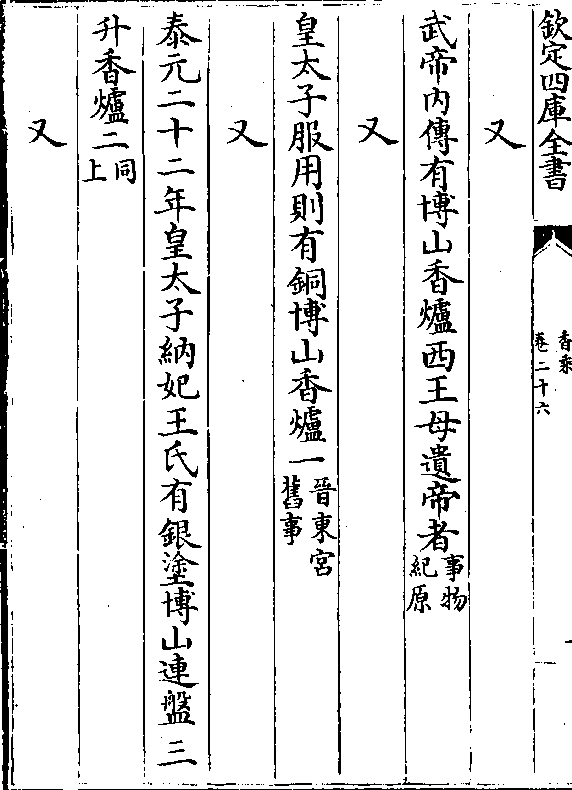 欽定四庫全書
香乘
卷二十六
又
武帝內傳有博山香爐西王母遺帝者事物紀原
又
皇太子服用則有銅博山香爐一晉東宮舊事
又
泰元二十二年皇太子納妃王氏有銀塗博山連盤三
升香爐二同上
又